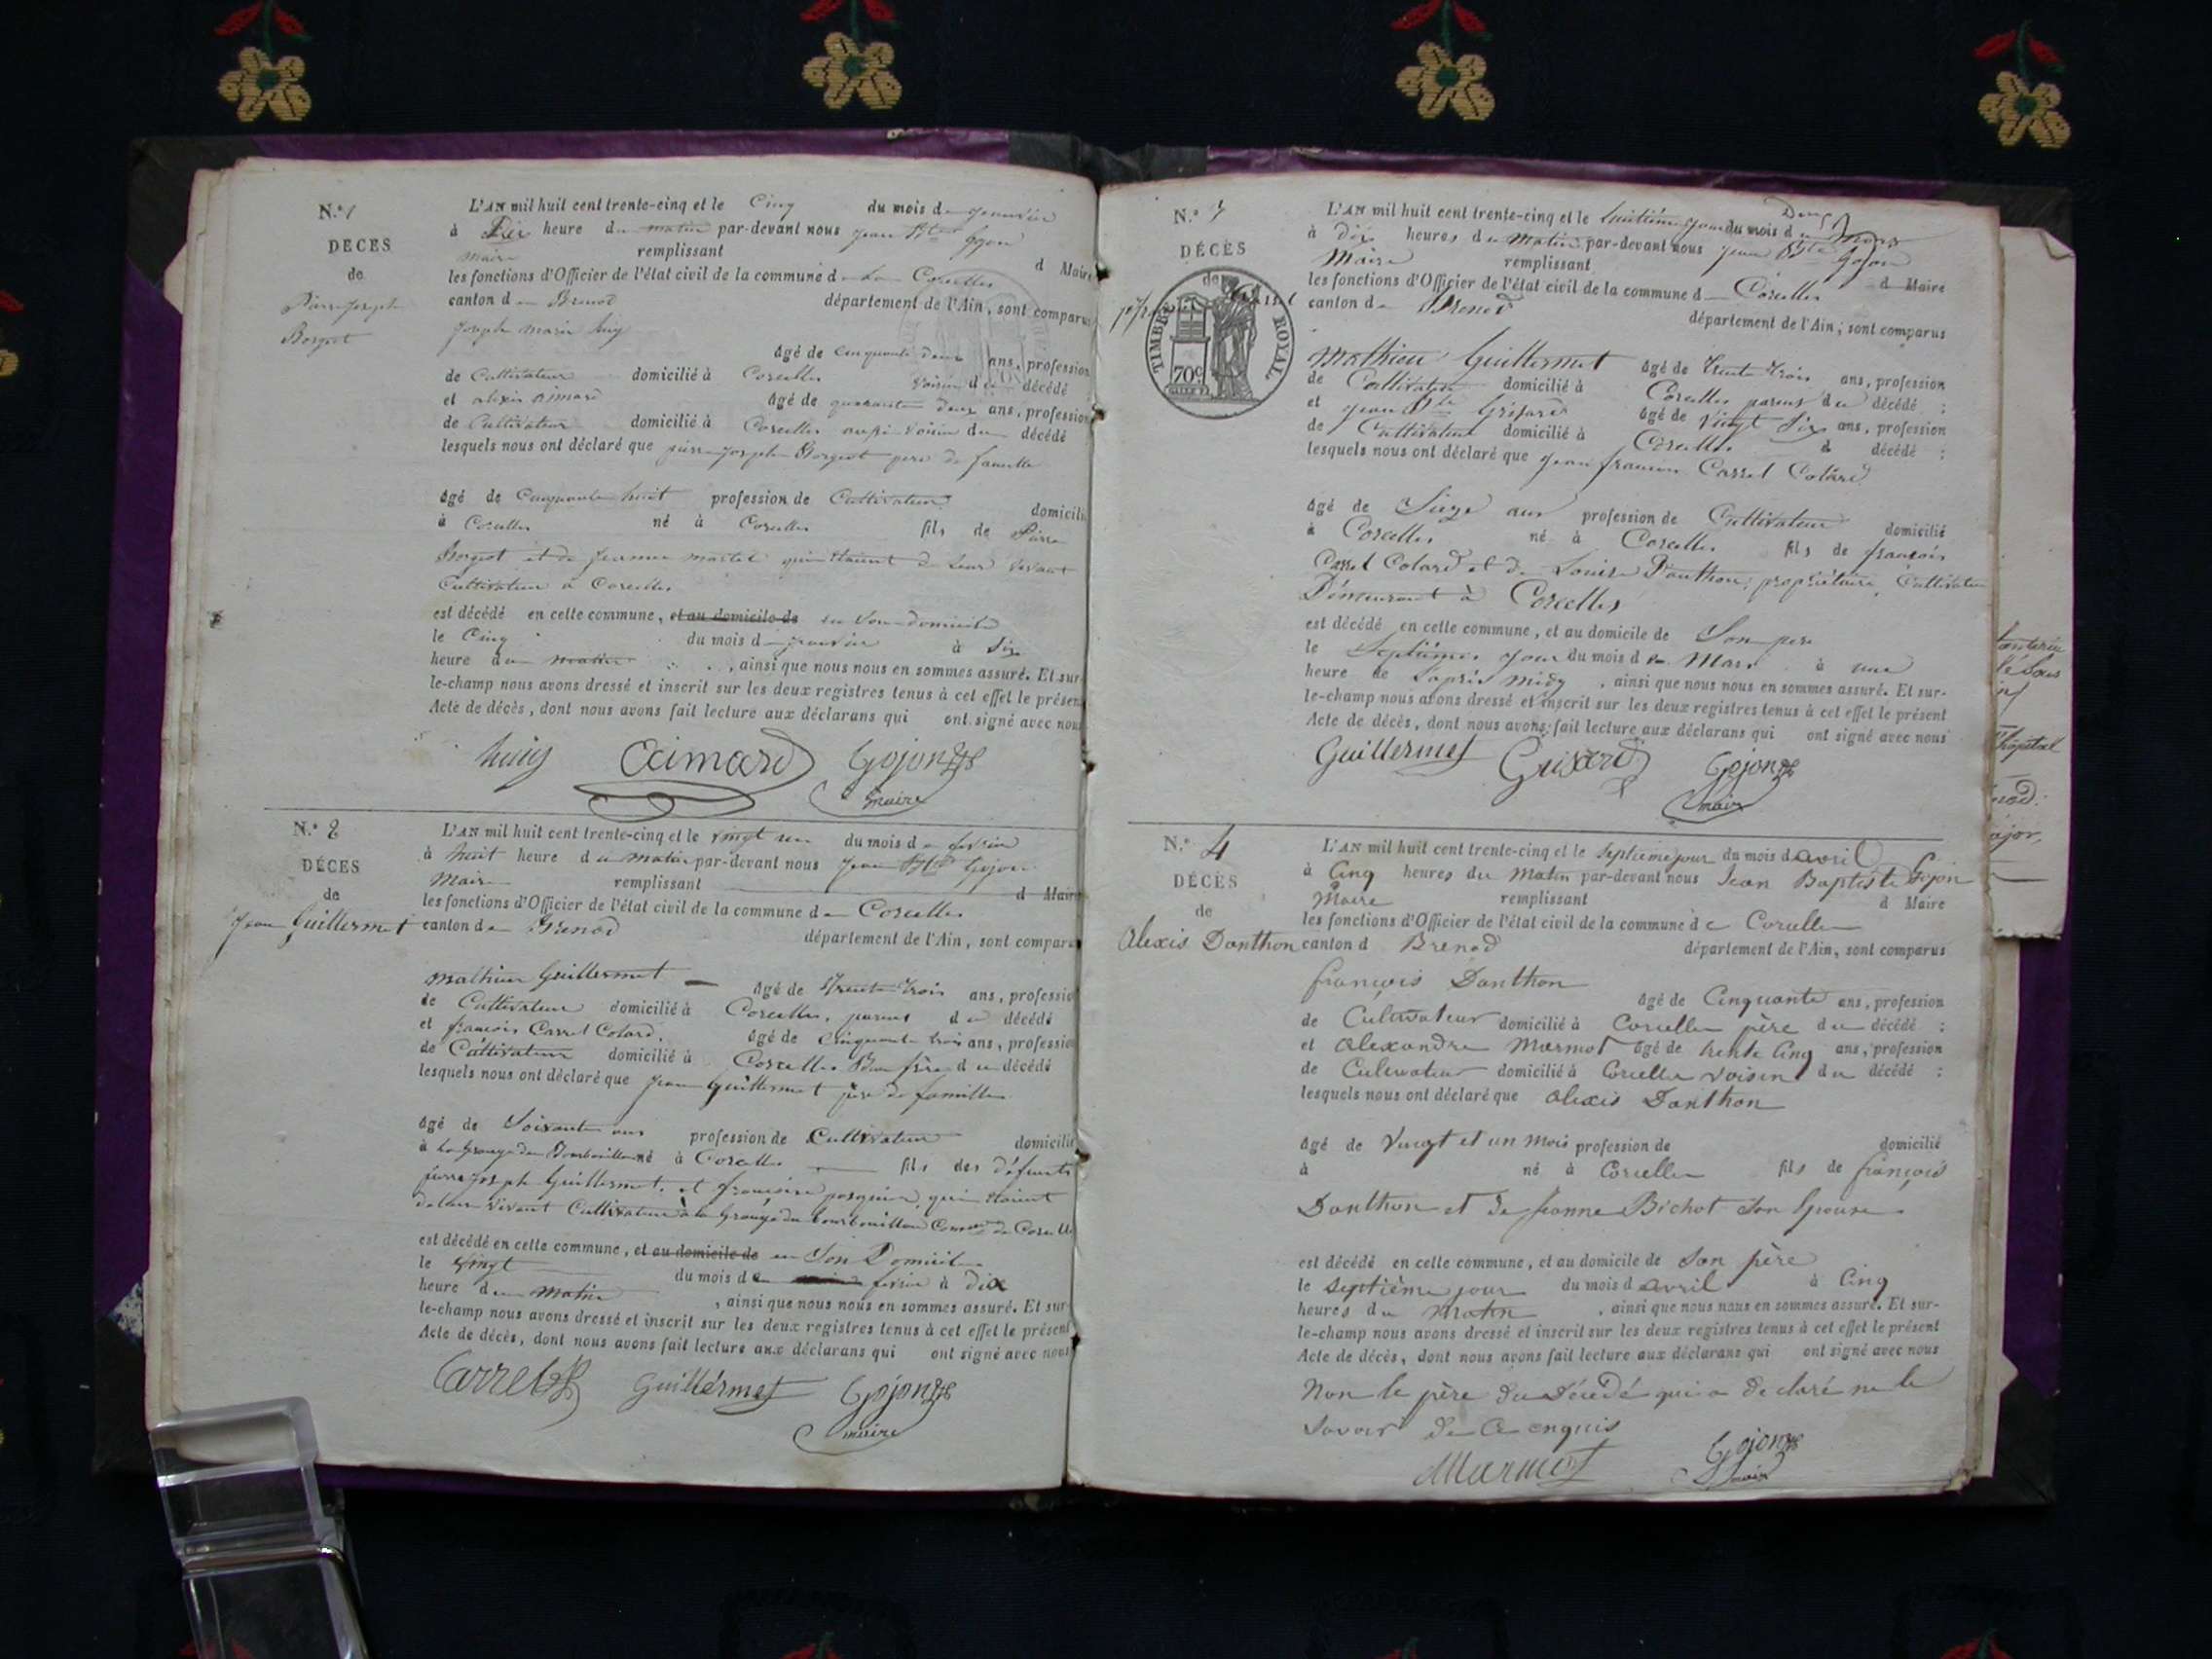 N.º 1
DÉCÈS
de
Pierre Joseph
Borgeot
L'AN mil huit cent trente-cinq et le Cinq du mois de janvier
à Dix heure du matin par-devant nous jean Bte Gojon
maire remplissant d Maire
les fonctions d'Officier de l'état civil de la commune de Corcelles
canton de Brenod département de l'Ain, sont comparus
joseph marie huig
âgé de cinquante deux ans, profession
de Cultivateur domicilié à Corcelles voisin du décédé
et alexis aimard âgé de quarante deux ans, profession
de Cultivateur domicilié à Corcelles aussi voisin du décédé
lesquels nous ont déclaré que pierre joseph Borgeot pere de famille
âgé de Cinquante huit profession de Cultivateur domicilié
à Corcelles né à Corcelles fils de Pierre
Borgeot et de jeanne martel qui étaient de leur vivant
Cultivateur à Corcelles
est décédé en cette commune, et au domicile de en son domicile
le Cinq du mois de janvier à Six
heure du matin, ainsi que nous nous en sommes assuré. Et sur-
le-champ nous avons dressé et inscrit sur les deux registres tenus à cet effet le présent
Acte de décès, dont nous avons fait lecture aux déclarans qui ont signé avec nous
huig Aimard Gojon
maire
N.º 2
DÉCÈS
de
Jean Guillermet
L'AN mil huit cent trente-cinq et le vingt un du mois de fevrier
à huit heure du matin par-devant nous Jean Bte Gojon
Maire remplissant d Maire
les fonctions d'Officier de l'état civil de la commune de Corcelles
canton de Brenod département de l'Ain, sont comparus
mathieu Guillermet âgé de Trente trois ans, profession
de Cultivateur domicilié à Corcelles, parent du décédé
et françois Carrel Colard, âgé de Cinquante trois ans, profession
de Cultivateur domicilié à Corcelles Beau frère du décédé
lesquels nous ont déclaré que Jean Guillermet père de famille
âgé de Soixante ans profession de Cultivateur domicilié
à la Grange du Bourbouillon né à Corcelles fils des défunts
pierre joseph Guillermet, et françoise pasquier, qui étaient
de leur vivant Cultivateur à la Grange du bourbouillon Comne de Corcelle
est décédé en cette commune, et au domicile de en Son Domicile
le vingt du mois de fevrier à dix
heure du matin, ainsi que nous nous en sommes assuré. Et sur-
le-champ nous avons dressé et inscrit sur les deux registres tenus à cet effet le présent
Acte de décès, dont nous avons fait lecture aux déclarans qui ont signé avec nous
Carrel Guillermet Gojon
maire
N.º 3
DÉCÈS
de
TIMBRE ROYAL
70c
L'AN mil huit cent trente-cinq et le huitième jour du mois de mars
à dix heures du matin par-devant nous jean Bte Gojon
Maire remplissant d Maire
les fonctions d'Officier de l'état civil de la commune d Corcelles
canton de Brenod département de l'Ain, sont comparus
Mathieu Guillermet âgé de trente trois ans, profession
de Cultivateur domicilié à Corcelles parent du décédé :
et jean Bte Grisard âgé de vingt Six ans, profession
de Cultivateur domicilié à Corcelles d décédé :
lesquels nous ont déclaré que jean françois Carrel Colard
âgé de Sieze ans profession de Cultivateur domicilié
à Corcelles né à Corcelles fils de françois
Carrel Colard et de Louise Danthon, propriétaire, Cultivateur
Démeurant à Corcelles
est décédé en cette commune, et au domicile de Son pere
le Septième jour du mois de Mars à une
heure de laprès midy, ainsi que nous nous en sommes assuré. Et sur-
le-champ nous avons dressé et inscrit sur les deux registres tenus à cet effet le présent
Acte de décès, dont nous avons fait lecture aux déclarans qui ont signé avec nous
Guillermet Grisard Gojon
maire
N.º 4
DÉCÈS
de
Alexis Danthon
L'AN mil huit cent trente-cinq et le septième jour du mois d avril
à Cinq heures du Matin par-devant nous Jean Baptiste Gojon
Maire remplissant d Maire
les fonctions d'Officier de l'état civil de la commune de Corcelle
canton d Brenod département de l'Ain, sont comparus
françois Danthon
âgé de Cinquante ans, profession
de Cultivateur domicilié à Corcelle père du décédé :
et Alexandre Marmot âgé de trente Cinq ans, profession
de Cultivateur domicilié à Corcelle voisin du décédé :
lesquels nous ont déclaré que Alexis Danthon
âgé de Vingt et un Mois profession de domicilié
à né à Corcelle fils de françois
Danthon et de Jeanne Bichot son Epouse
est décédé en cette commune, et au domicile de Son père
le septième jour du mois d avril à Cinq
heures du Matin, ainsi que nous nous en sommes assuré. Et sur-
le-champ nous avons dressé et inscrit sur les deux registres tenus à cet effet le présent
Acte de décès, dont nous avons fait lecture aux déclarans qui ont signé avec nous
Non le père du décédé qui a déclaré ne le
savoir de Ce enquis
Marmot Gojon
maire